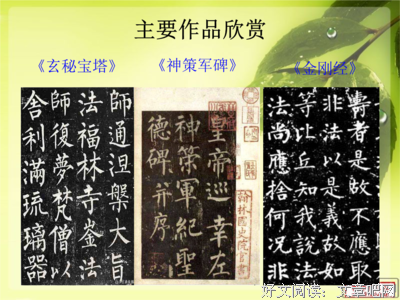 主要作品欣赏
《玄秘宝塔》
《神策军碑》
《金刚经》
師通涅槃大旨
法福林寺崟法
師復夢梵僧以
舍利滿琉璃器
皇帝巡幸左
神策軍紀聖
德碑并序
翰林國史院官書
壽者是故不應取
非法以是義故如
等比丘知我說法
法尚應捨何況非
好文阅读：文章吧网